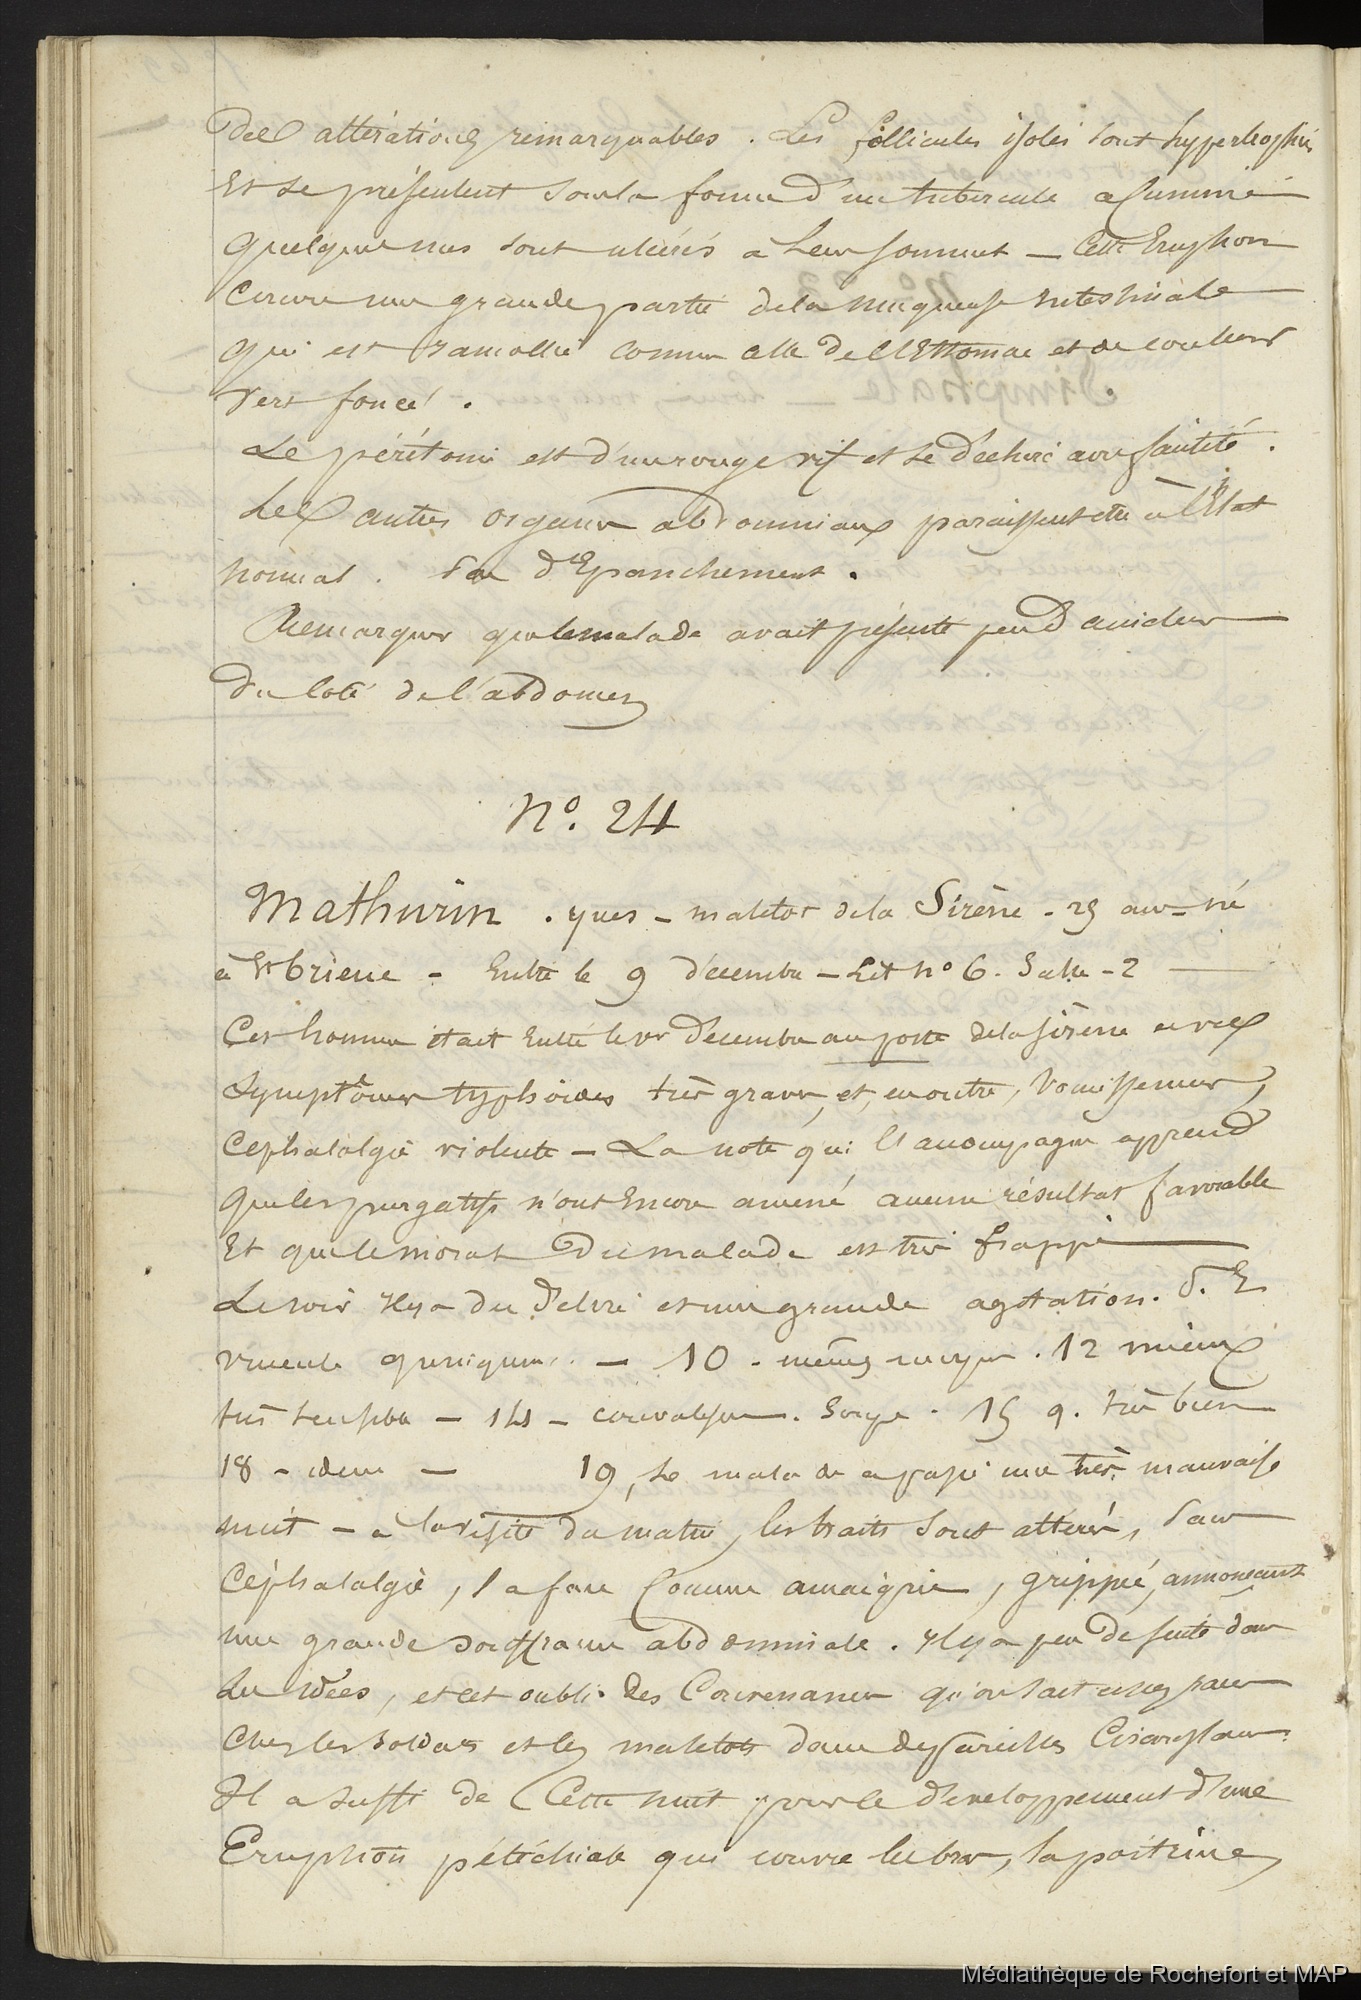 Des altérations remarquables. Les follicules isolés sont hypertrophiés
Et se présentent sous la forme d'un tubercule acuminé
quelques uns sont ulcérés à leur sommet — Cette Eruption
couvre une grande partie de la muqueuse intestinale
qui est ramollie comme celle de l'Estomac et de couleur
vert foncé.
Le péritoine est d'un rouge vif et se déchire avec facilité.
Les autres organes abdominaux paraissent être à l'État
normal. Pas d'Epanchement.
Remarquer que le malade avait présenté peu d'accidens
du coté de l'abdomen
No. 24
Mathurin. yves - matelot de la Sirène - 25 ans - né
à St brieuc - Entré le 9 décembre - Lit no 6. Salle - 2
Cet homme était entré le 1er Décembre au poste de la Sirène avec
symptômes typhoïdes très graves, et, en outre, Vomissemens,
Céphalalgie violente — La note qui l'accompagne apprend
que les purgatifs n'ont Encore amené aucun résultat favorable
Et que le moral du malade est très frappé
Le soir il y a du délire et une grande agitation. S. E
— 10 - mêmes moyens. 12 mieux
très sensible — 14 - convalescence. Soupe. 15 q. très bien
18 - idem — 19, Le malade a passé une très mauvaise
nuit — à la visite du matin, les traits sont altérés, sans
Céphalalgie, la face comme amaigrie, grippée, annonçant
une grande souffrance abdominale. il y a peu de suite dans
les idées, et cet oubli des Convenances qu'on sait assez rare
chez les soldats et les matelots dans de pareilles circonstances.
Il a suffi de Cette nuit pour le développement d'une
Eruption pétéchiale qui couvre les bras, la poitrine,
Médiathèque de Rochefort et MAP